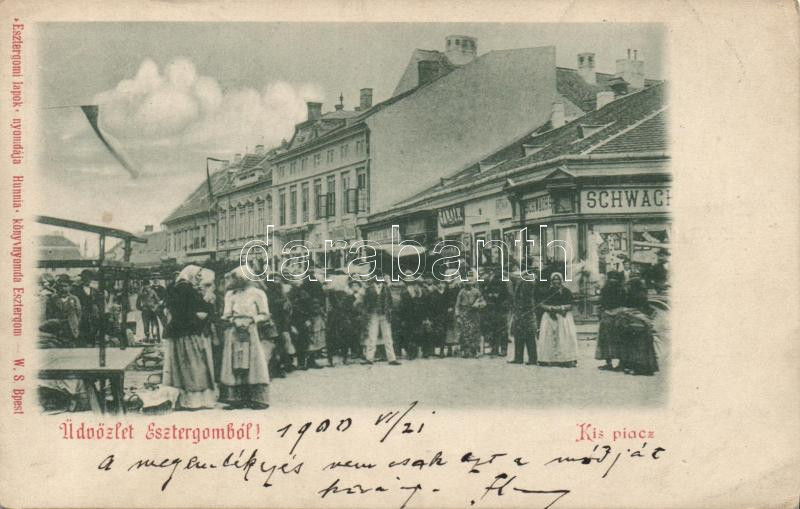 "Esztergomi lapok" nyomdája "Hunnia" könyvnyomda Esztergom — W. S. Bpest
SCHWACH
darabanth
Üdvözlet Esztergomból!
1900 VI/21
Kis piacz
A megemlékezés nem csak ezt a módját